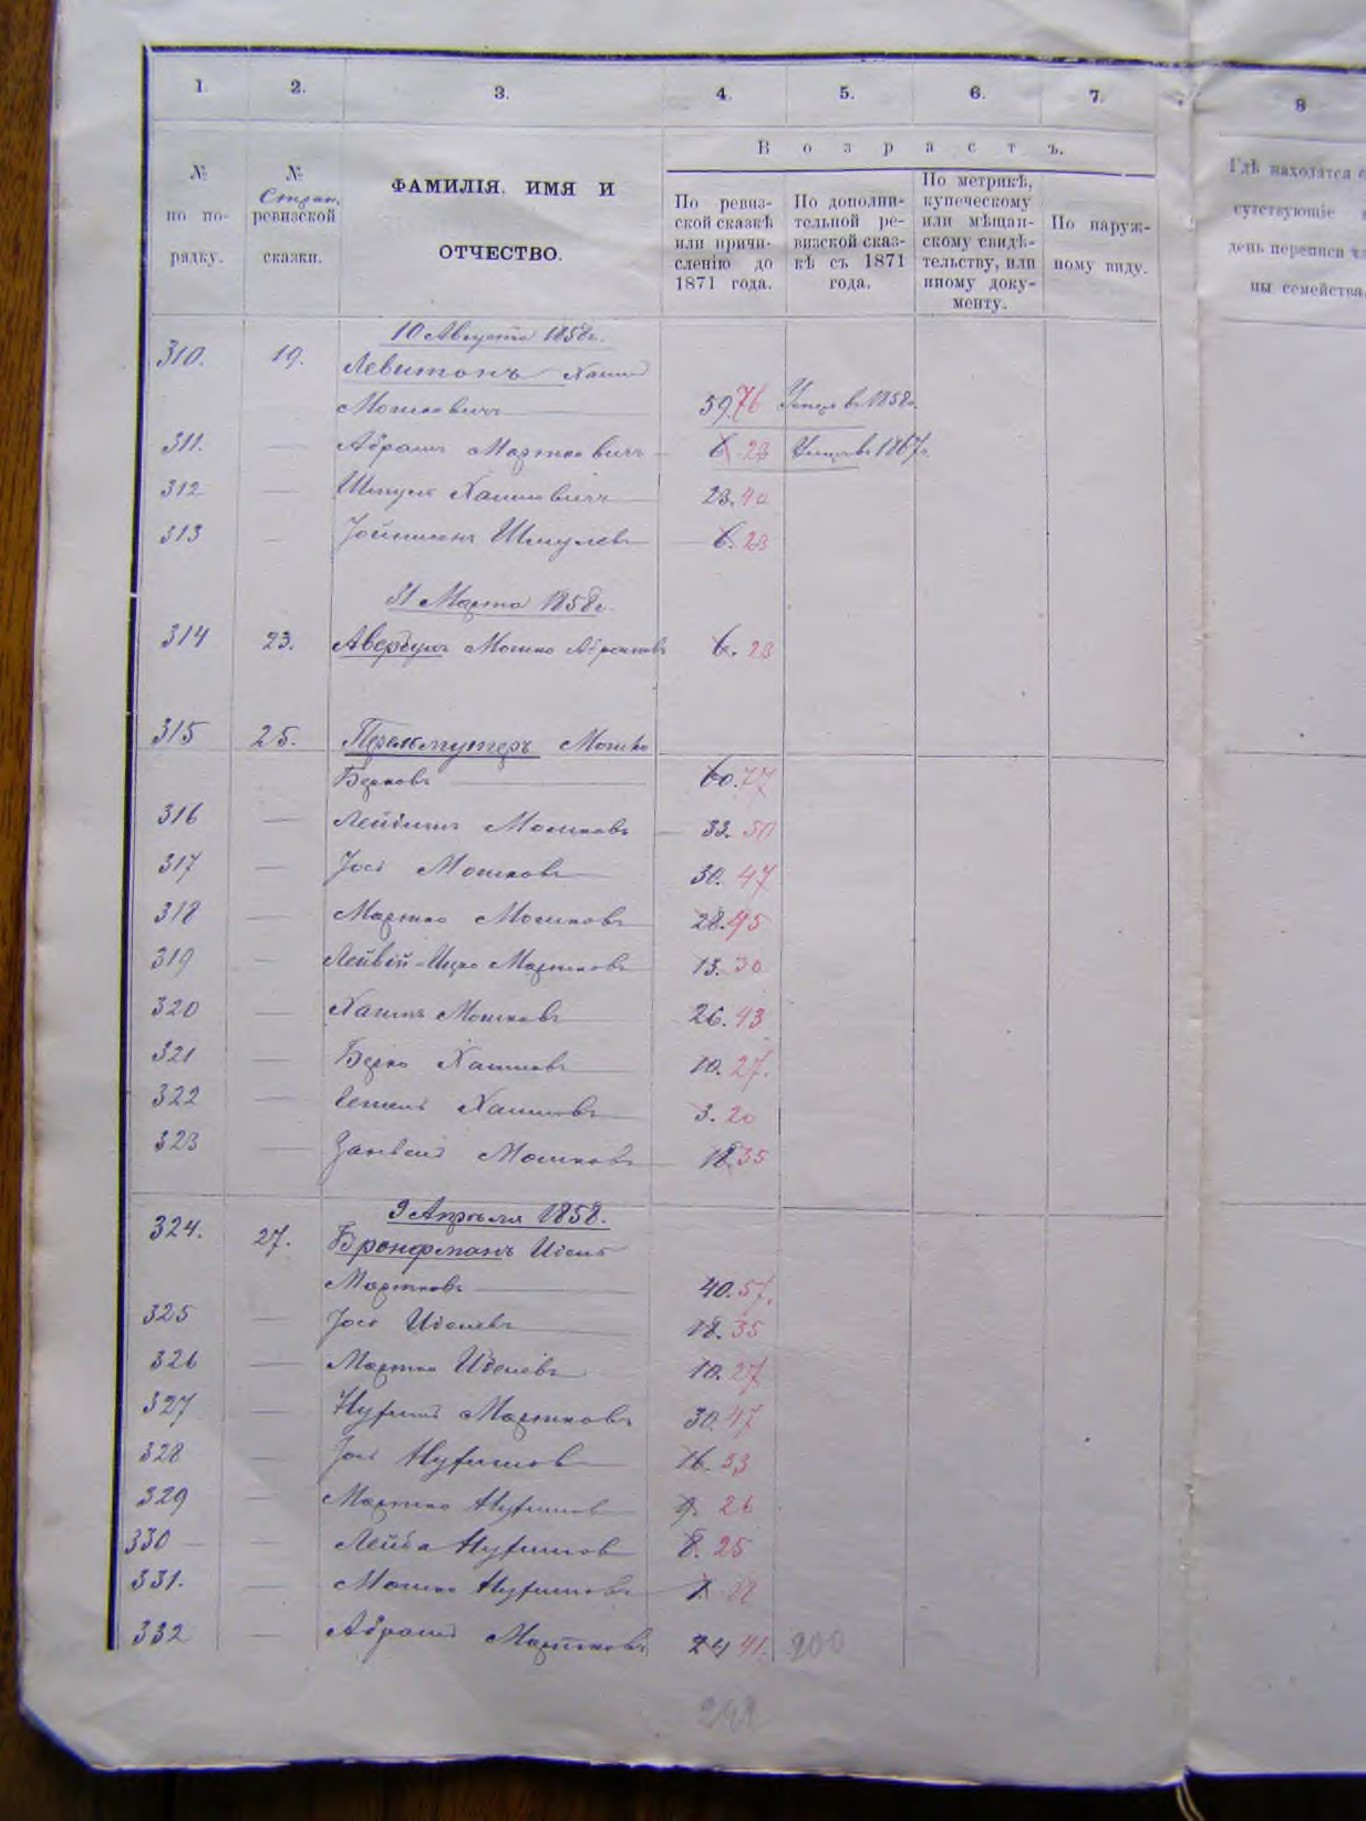 1. 2. 3. 4. 5. 6. 7. 8
В о з р а с т ъ.
№ по по-рядку.
№ Стран. ревизской сказки.
ФАМИЛІЯ, ИМЯ И
ОТЧЕСТВО.
По ревиз-
ской сказкѣ
или причи-
сленію до
1871 года.
По дополни-
тельной ре-
визской сказ-
кѣ съ 1871
года.
По метрикѣ,
купеческому
или мѣщан-
скому свидѣ-
тельству, или
иному доку-
менту.
По наруж-
ному виду.
Гдѣ находятся
сутствующіе
день переписи
ны семейства
10 Августа 1858г.
310. 19. Левитонъ Хаимъ
Мошковичъ 59.76 Умеръ въ 1858г.
311. — Абрамъ Мартковичъ 6. 23 Умеръ въ 1867г.
312 — Шмуль Хаимовичъ 23.40
313 — Іойнисонъ Шмулевъ 6.23
31 Марта 1858г.
314 23. Авербухъ Мошко Абрамовъ 6. 23
315 25. Перельмутеръ Мошко
Берковъ 60.77
316 — Лейбишъ Мошковъ 33. 50
317 — Іось Мошковъ 30. 47
318 — Мартко Мошковъ 28.45
319 — Лейвій-Ицко Мартковъ 13. 30
320 — Хаимъ Мошковъ 26. 43
321 — Берко Хаимовъ 10. 27.
322 — Хаимовъ 3. 20
323 — Занвель Мошковъ 18.35
9 Апрѣля 1858.
324. 27. Бронфманъ Идель
Мартковъ 40.57.
325 — Іось Иделевъ 18. 35
326 — Мартко Иделевъ 10. 27
327 — Нухимъ Мартковъ 30.47
328 — Іось Нухимов 16. 33
329 — Мартко Нухимов 9. 26
330 — Лейба Нухимов 8. 25
331. — Мошко Нухимовъ
332 — Абрамъ Мартковъ 24 41. 200